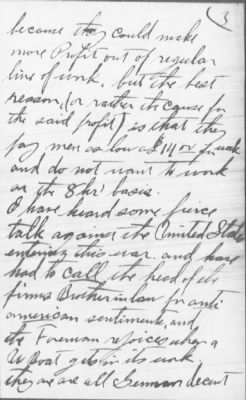 3
because they could make
more Profit out of regular
line of work, but the best
reason, (or rather the cause for
the said profit) is that they
pay men as low as $14 00 week
and do not want to work
on the 8 hr' basis.
I have heard some fierce
talk against the United States
entering this war, and have
had to call the head of the
firms Brother in law for anti
american sentiments, and
the Foreman rejoices when a
U Boat gets in its work.
they are are all German decent